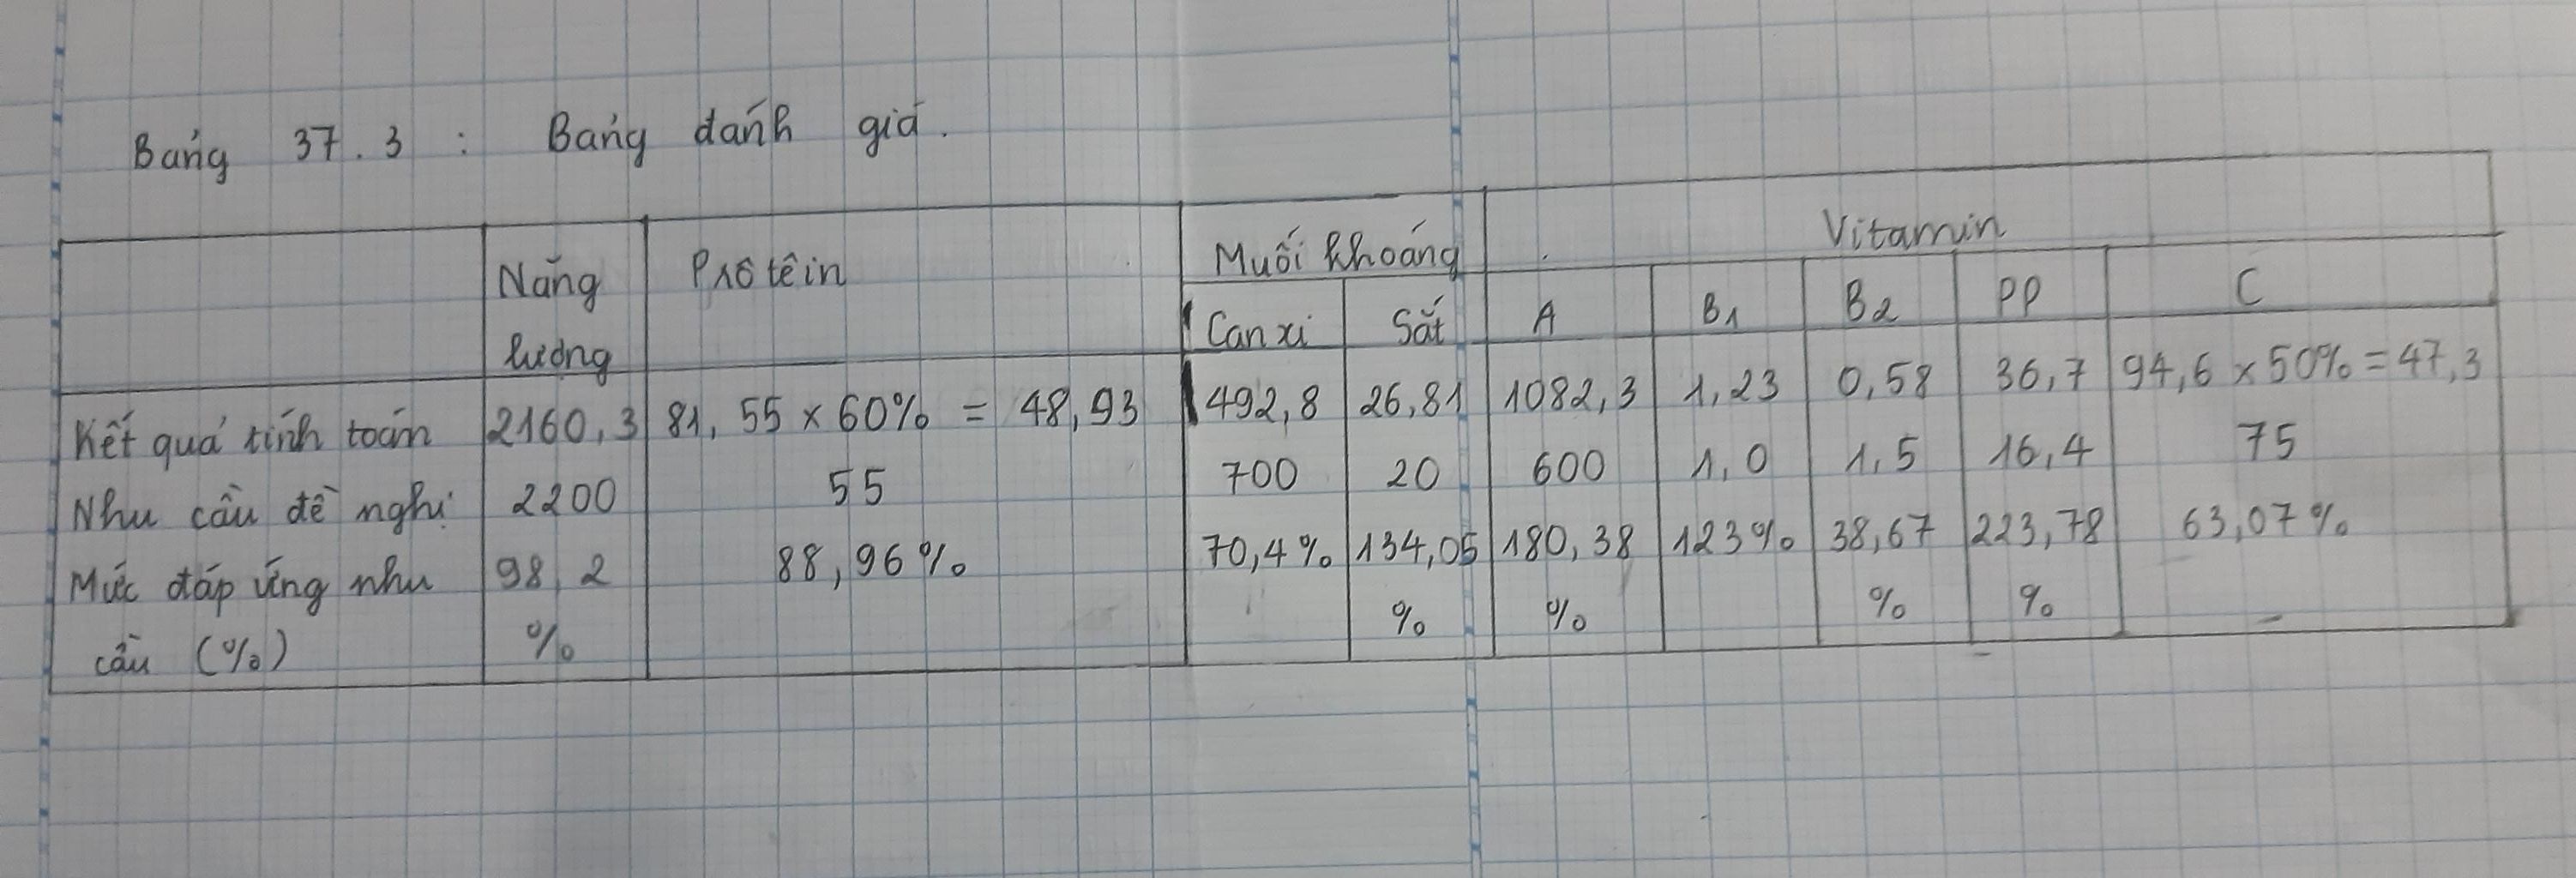 Bảng 37.3 : Bảng đánh giá.
Năng lượng | Prôtêin | Muối khoáng | Vitamin
Canxi | Sắt | A | B1 | B2 | PP | C
Kết quả tính toán | 2160,3 | 81,55 x 60% = 48,93 | 492,8 | 26,81 | 1082,3 | 1,23 | 0,58 | 36,7 | 94,6 x 50% = 47,3
Nhu cầu đề nghị | 2200 | 55 | 700 | 20 | 600 | 1,0 | 1,5 | 16,4 | 75
Mức đáp ứng nhu cầu (%) | 98,2 % | 88,96% | 70,4% | 134,05 % | 180,38 % | 123% | 38,67 % | 223,78 % | 63,07%